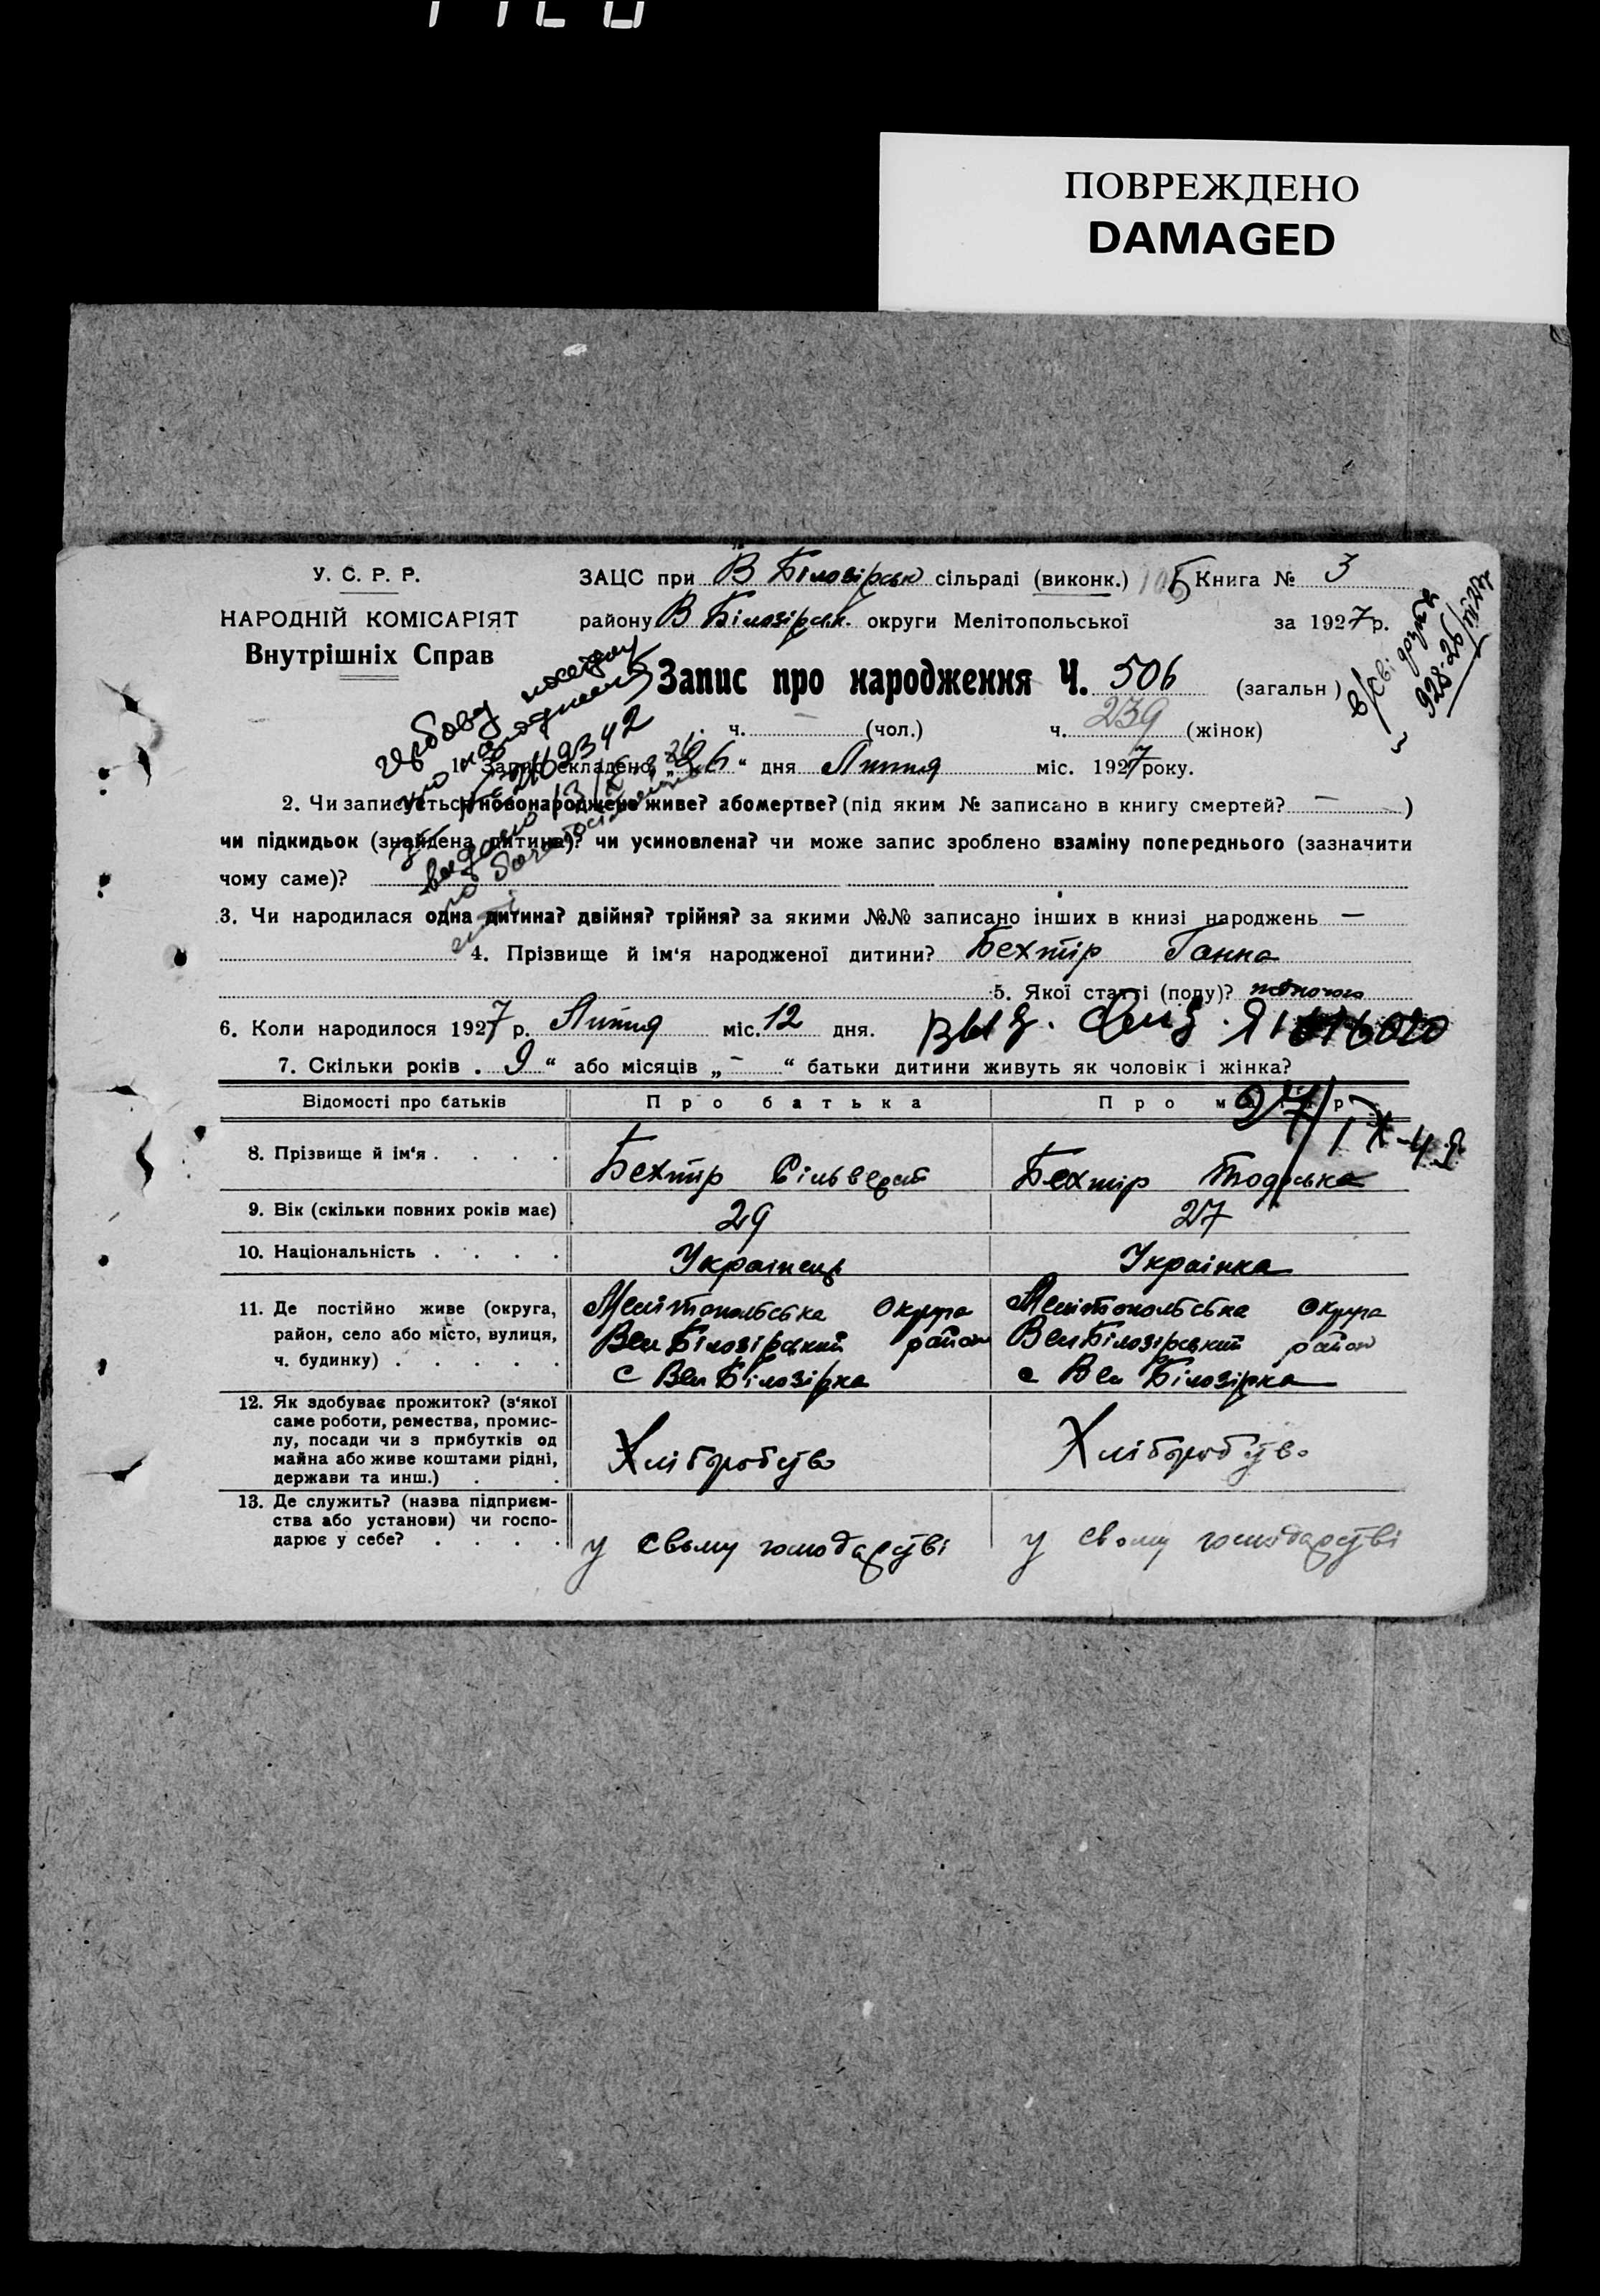 ПОВРЕЖДЕНО
DAMAGED
У. С. Р. Р.
НАРОДНІЙ КОМІСАРІЯТ
Внутрішніх Справ
ЗАЦС при В Білозірськ сільраді (виконк.) Книга № 3
району В Білозірськ. округи Мелітопольської за 1927 р.
Запис про народження Ч. 506 (загальн)
ч. — (чол.) ч. 239 (жінок)
1. Запис складено „26“ дня Липня міс. 1927 року.
2. Чи записується новонароджене живе? або мертве? (під яким № записано в книгу смертей? — )
чи підкидьок (знайдена дитина)? чи усиновлена? чи може запис зроблено взаміну попереднього (зазначити
чому саме)?
3. Чи народилася одна дитина? двійня? трійня? за якими №№ записано інших в книзі народжень —
4. Прізвище й ім'я народженої дитини? Бехтір Ганна
5. Якої статті (полу)?
6. Коли народилося 1927 р. Липня міс. 12 дня.
7. Скільки років . 9 “ або місяців „ — “ батьки дитини живуть як чоловік і жінка?
Відомості про батьків Про батька Про матір
8. Прізвище й ім'я . . . . Бехтір Сільверст Бехтір Тодоська
9. Вік (скільки повних років має) 29 27
10. Національність . . . . Українець Українка
11. Де постійно живе (округа, Мелітопольська Округа Мелітопольська Округа
район, село або місто, вулиця, Вел Білозірський район Вел Білозірський район
ч. будинку) . . . . . с Вел Білозірка с Вел Білозірка
12. Як здобуває прожиток? (з'якої
саме роботи, ремества, промис-
лу, посади чи з прибутків од
майна або живе коштами рідні, Хліборобство Хліборобство
держави та инш.) . .
13. Де служить? (назва підприєм-
ства або установи) чи госпо-
дарює у себе? . . . . у свому господарстві у свому господарстві